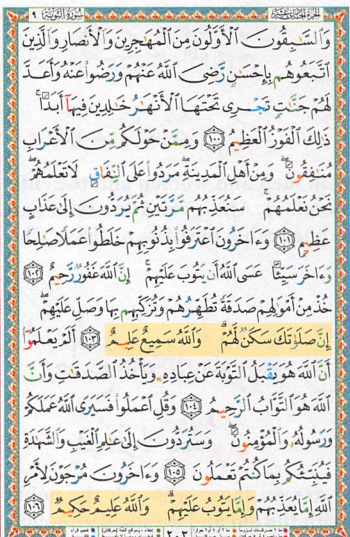 سورة التوبة ٩
وَالسَّٰبِقُونَ الْأَوَّلُونَ مِنَ الْمُهَٰجِرِينَ وَالْأَنصَارِ وَالَّذِينَ
اتَّبَعُوهُم بِإِحْسَٰنٍ رَّضِيَ اللَّهُ عَنْهُمْ وَرَضُوا عَنْهُ وَأَعَدَّ
لَهُمْ جَنَّٰتٍ تَجْرِي تَحْتَهَا الْأَنْهَٰرُ خَٰلِدِينَ فِيهَا أَبَدًا ۚ
ذَٰلِكَ الْفَوْزُ الْعَظِيمُ ١٠٠ وَمِمَّنْ حَوْلَكُم مِّنَ الْأَعْرَابِ
مُنَٰفِقُونَ ۖ وَمِنْ أَهْلِ الْمَدِينَةِ ۖ مَرَدُوا عَلَى النِّفَاقِ لَا تَعْلَمُهُمْ ۖ
نَحْنُ نَعْلَمُهُمْ ۚ سَنُعَذِّبُهُم مَّرَّتَيْنِ ثُمَّ يُرَدُّونَ إِلَىٰ عَذَابٍ
عَظِيمٍ ١٠١ وَءَاخَرُونَ اعْتَرَفُوا بِذُنُوبِهِمْ خَلَطُوا عَمَلًا صَٰلِحًا
وَءَاخَرَ سَيِّئًا عَسَى اللَّهُ أَن يَتُوبَ عَلَيْهِمْ ۚ إِنَّ اللَّهَ غَفُورٌ رَّحِيمٌ ١٠٢
خُذْ مِنْ أَمْوَٰلِهِمْ صَدَقَةً تُطَهِّرُهُمْ وَتُزَكِّيهِم بِهَا وَصَلِّ عَلَيْهِمْ ۖ
إِنَّ صَلَوٰتَكَ سَكَنٌ لَّهُمْ ۗ وَاللَّهُ سَمِيعٌ عَلِيمٌ ١٠٣ أَلَمْ يَعْلَمُوا
أَنَّ اللَّهَ هُوَ يَقْبَلُ التَّوْبَةَ عَنْ عِبَادِهِ وَيَأْخُذُ الصَّدَقَٰتِ وَأَنَّ
اللَّهَ هُوَ التَّوَّابُ الرَّحِيمُ ١٠٤ وَقُلِ اعْمَلُوا فَسَيَرَى اللَّهُ عَمَلَكُمْ
وَرَسُولُهُ وَالْمُؤْمِنُونَ ۖ وَسَتُرَدُّونَ إِلَىٰ عَٰلِمِ الْغَيْبِ وَالشَّهَٰدَةِ
فَيُنَبِّئُكُم بِمَا كُنتُمْ تَعْمَلُونَ ١٠٥ وَءَاخَرُونَ مُرْجَوْنَ لِأَمْرِ
اللَّهِ إِمَّا يُعَذِّبُهُمْ وَإِمَّا يَتُوبُ عَلَيْهِمْ ۗ وَاللَّهُ عَلِيمٌ حَكِيمٌ ١٠٦